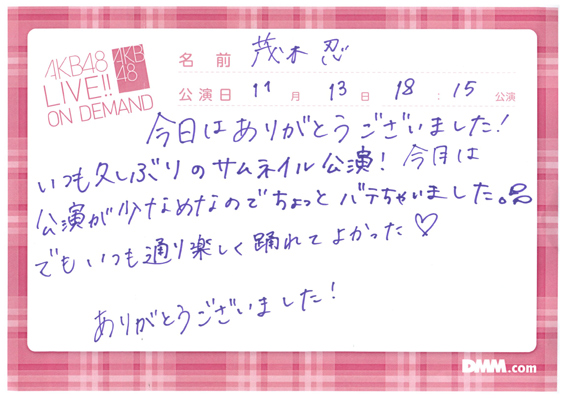 AKB48
LIVE!!
ON DEMAND
AKB
48
名前 茂木 忍
公演日 11月 13日 18:15 公演
今日はありがとうございました!
いつも久しぶりのサムネイル公演! 今月は
公演が少なめなのでちょっとバテちゃいました。
でもいつも通り楽しく踊れてよかった♡
ありがとうございました!
DMM.com